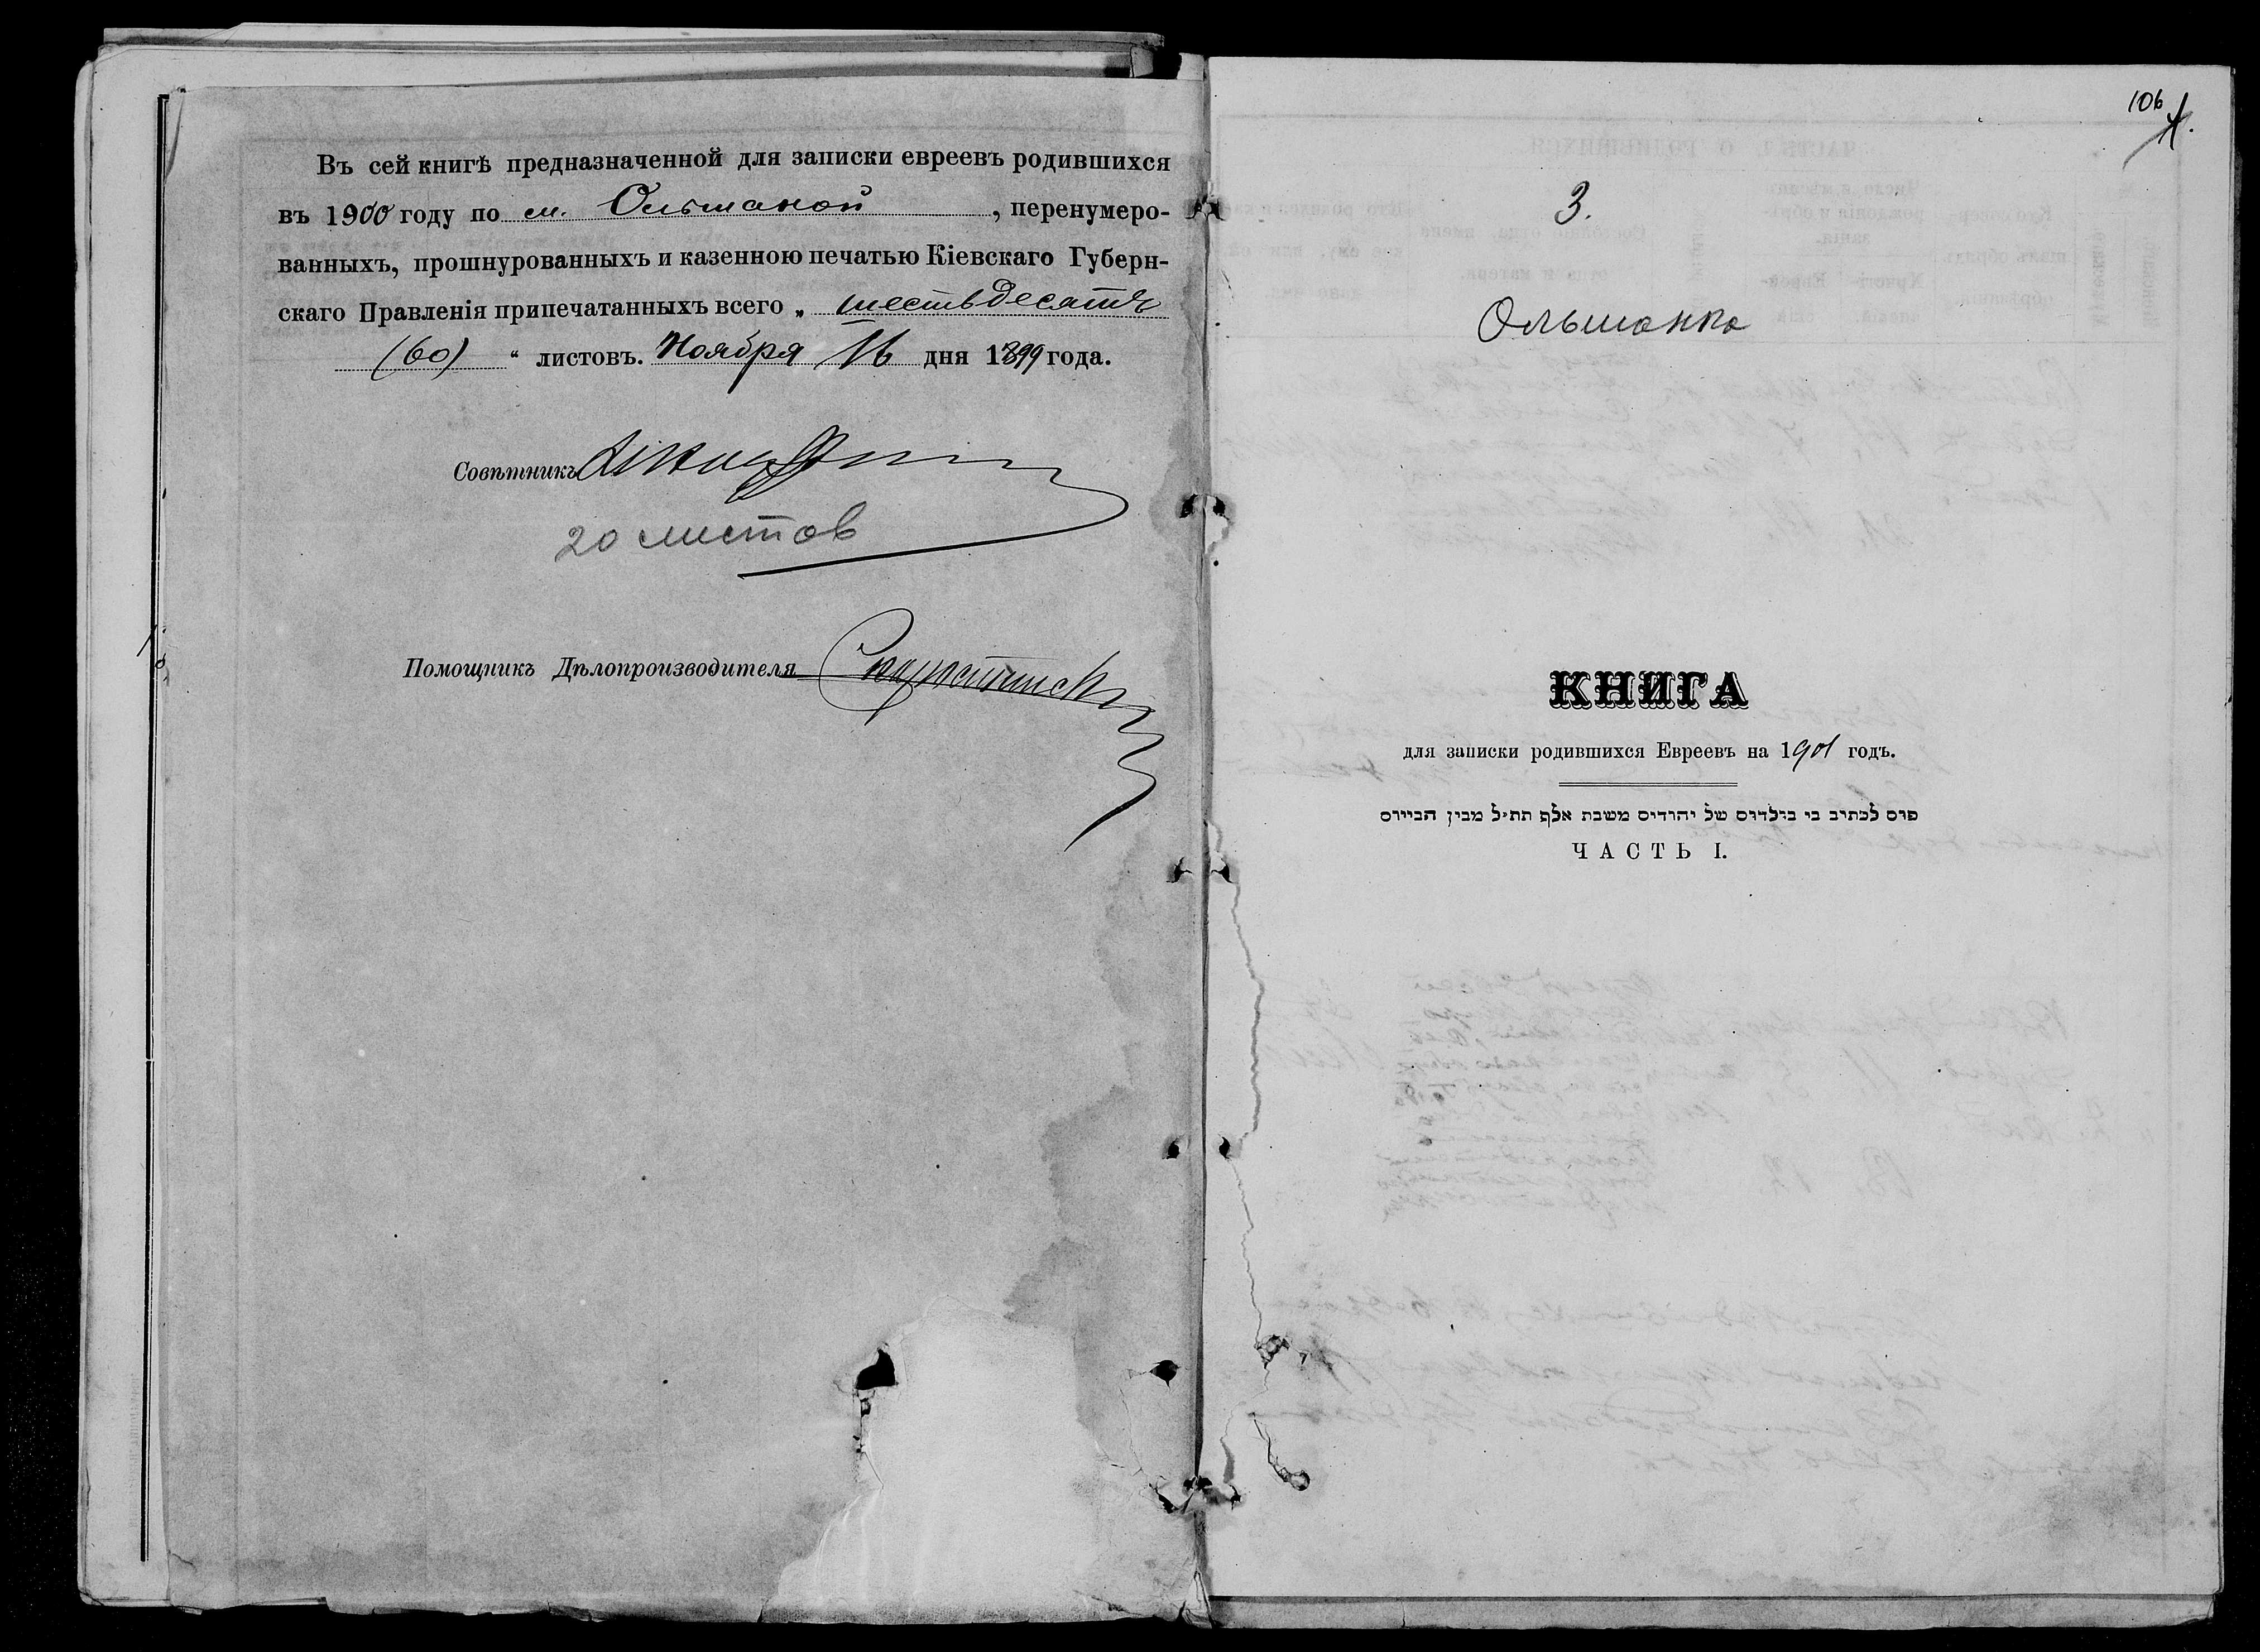 Въ сей книгѣ предназначенной для записки евреевъ родившихся
въ 1900 году по м. Ольшаной, перенумеро-
ванныхъ, прошнурованныхъ и казенною печатью Кіевскаго Губерн-
скаго Правленія припечатанныхъ всего „ шестьдесятъ
(60) “ листовъ. Ноября 16 дня 1899 года.
Совѣтникъ
20 листов
Помощникъ Дѣлопроизводителя
106
3.
Ольшанка
КНИГА
для записки родившихся Евреевъ на 1901 годъ.
פוס לכתיב בי בילדוס של יהודיס משבת אלף תת״ל מבין הבייוס
ЧАСТЬ I.